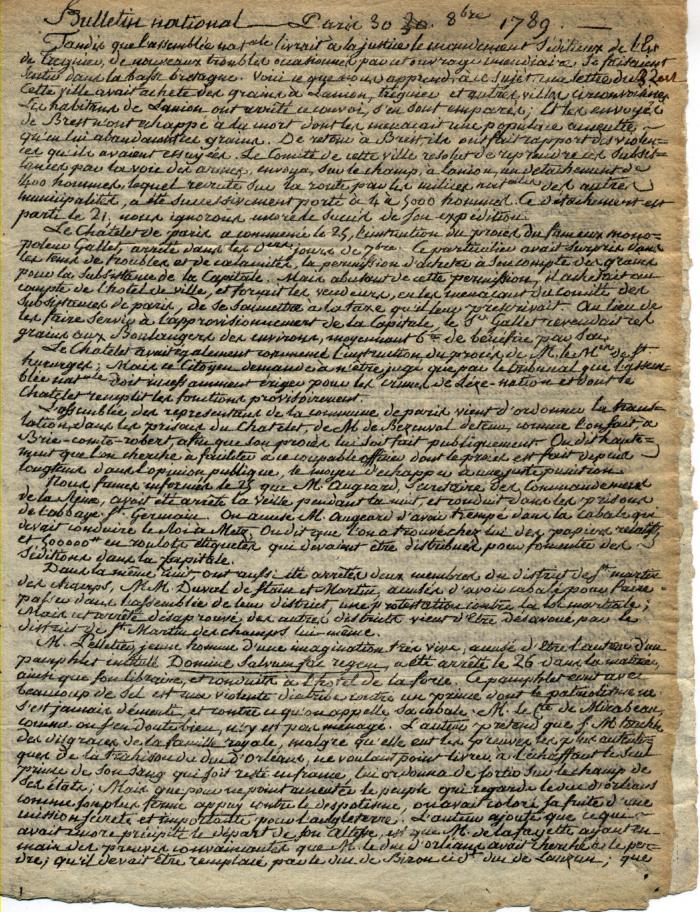 Bulletin national — Paris 30 8bre 1789. —
Tandis que l'assemblée natale livrait à la justice le mandement séditieux de l'Ev.
de Treguier, de nouveaux troubles occasionnés par cet ouvrage incendiaire, se faisaient
sentir dans la basse bretagne. Voici ce que nous apprend à ce sujet une lettre de Brest
Cette ville avait acheté des grains à Lanion, treguier et autres villes circonvoisines
Les habitans de Lanion ont arrêté ce convoi, s'en sont emparés; Et les envoyés
de Brest n'ont échappé à la mort dont les menaçait une populace ameutée
qu'en lui abandonnant ces grains. De retour à Brest ils ont fait rapport des violen-
ces qu'ils avaient essuyées. Le Comité de cette ville résolut de reprendre ces subsis-
tances par la voie des armes, envoya, sur le champ, à lanion, un détachement de
400 hommes, lequel recruté sur la route par les milices natales des autres
municipalités, a été successivement porté à 4 à 5000 hommes. Ce détachement est
parti le 21, nous ignorons encore le succès de son expédition.
Le Chatelet de paris a commencé le 25, l'instruction du procès du fameux mono-
poleur Gallet, arrêté dans les 1ers jours de 7bre. Ce particulier avait surpris dans
les tems de troubles et de calamités, la permission d'acheter à son compte des grains
pour la subsistance de la Capitale. Mais abusant de cette permission, il achetait au
compte de l'hotel de ville, et forçait les vendeurs, en les menaçant du comité des
subsistances de paris, de se soumettre à la taxe qu'il leur prescrivait. Au lieu de
les faire servir à l'approvisionnement de la Capitale, le Sr Gallet revendait ces
grains aux Boulangers des environs, moyennant 6tt de bénéfice par sac.
Le Chatelet avait également commencé l'instruction du procès de M. le Mis de St
huruges; Mais ce Citoyen demande à n'être jugé que par le tribunal que l'assem-
blée natale doit incessamment ériger pour les crimes de Lèze-nation et dont le
Chatelet remplit les fonctions provisoirement.
L'assemblée des représentans de la commune de paris vient d'ordonner la trans-
lation, dans les prisons du Chatelet, de M. de Bezenval detenu, comme l'on sait, à
Brie-comte-robert, afin que son procès lui soit fait publiquement. On dit haute-
ment que l'on cherche à faciliter à ce coupable officier dont le procès est fait depuis
longtems dans l'opinion publique, le moyen d'échapper à une juste punition
Nous fumes informés le 25 que M. Augeard, secretaire des Commandemens
de la Reine, avait été arrêté la veille pendant la nuit, et conduit dans les prisons
de l'abbaye St. Germain. On accuse M. Augeard d'avoir trempé dans la cabale qui
devait conduire le Roi à Metz. On dit que l'on a trouvé chez lui des papiers relatifs
et 500000tt en rouleaux étiquetés qui devaient être distribués pour fomenter des
séditions dans la capitale.
Dans la même nuit, ont aussi été arrêtés deux membres du district de St. martin
des champs, M.M. Duval de Stain et Martin, accusés d'avoir cabalé pour faire
passer dans l'assemblée de leur district, une protestation contre la loi martiale;
Mais cet arrêté désaprouvé des autres districts vient d'être désavoué par le
district de St Martin des champs lui-même.
M. l'elletier, jeune homme d'une imagination très vive, accusé d'être l'auteur d'un
pamphlet intitulé Domine Salvum fac regem, a été arrêté le 26 dans la matinée,
ainsi que son libraire, et conduits à l'hotel de la force. Ce pamphlet écrit avec
beaucoup de sel est une violente diatribe contre un prince dont le patriotisme ne
s'est jamais démenti, et contre ce qu'on appelle sa cabale. M. le Cte de Mirabeau,
comme on s'en doute bien, n'y est pas ménagé. L'auteur prétend que S. M. touchée
des disgraces de la famille royale, malgré qu'elle eut les preuves les plus authenti-
ques de la trahison du duc d'Orléans, ne voulant point livrer à l'échaffaut le seul
prince de son sang qui soit resté en france, lui ordonna de sortir sur le champ de
ses états; Mais que pour ne point ameuter le peuple qui regarde le duc d'orléans
comme son plus ferme appuy contre le despotisme, on avait coloré sa fuite d'une
mission secrète et importante pour l'angleterre. L'auteur ajoute que ce qui
avait encore précipité le départ de son altesse, est que M. de lafayette ayant en
main des preuves convaincantes que M. le duc d'orléans avait cherché à le per-
dre; qu'il devait être remplacé par le duc de Biron ci-dt duc de Lauzun; que